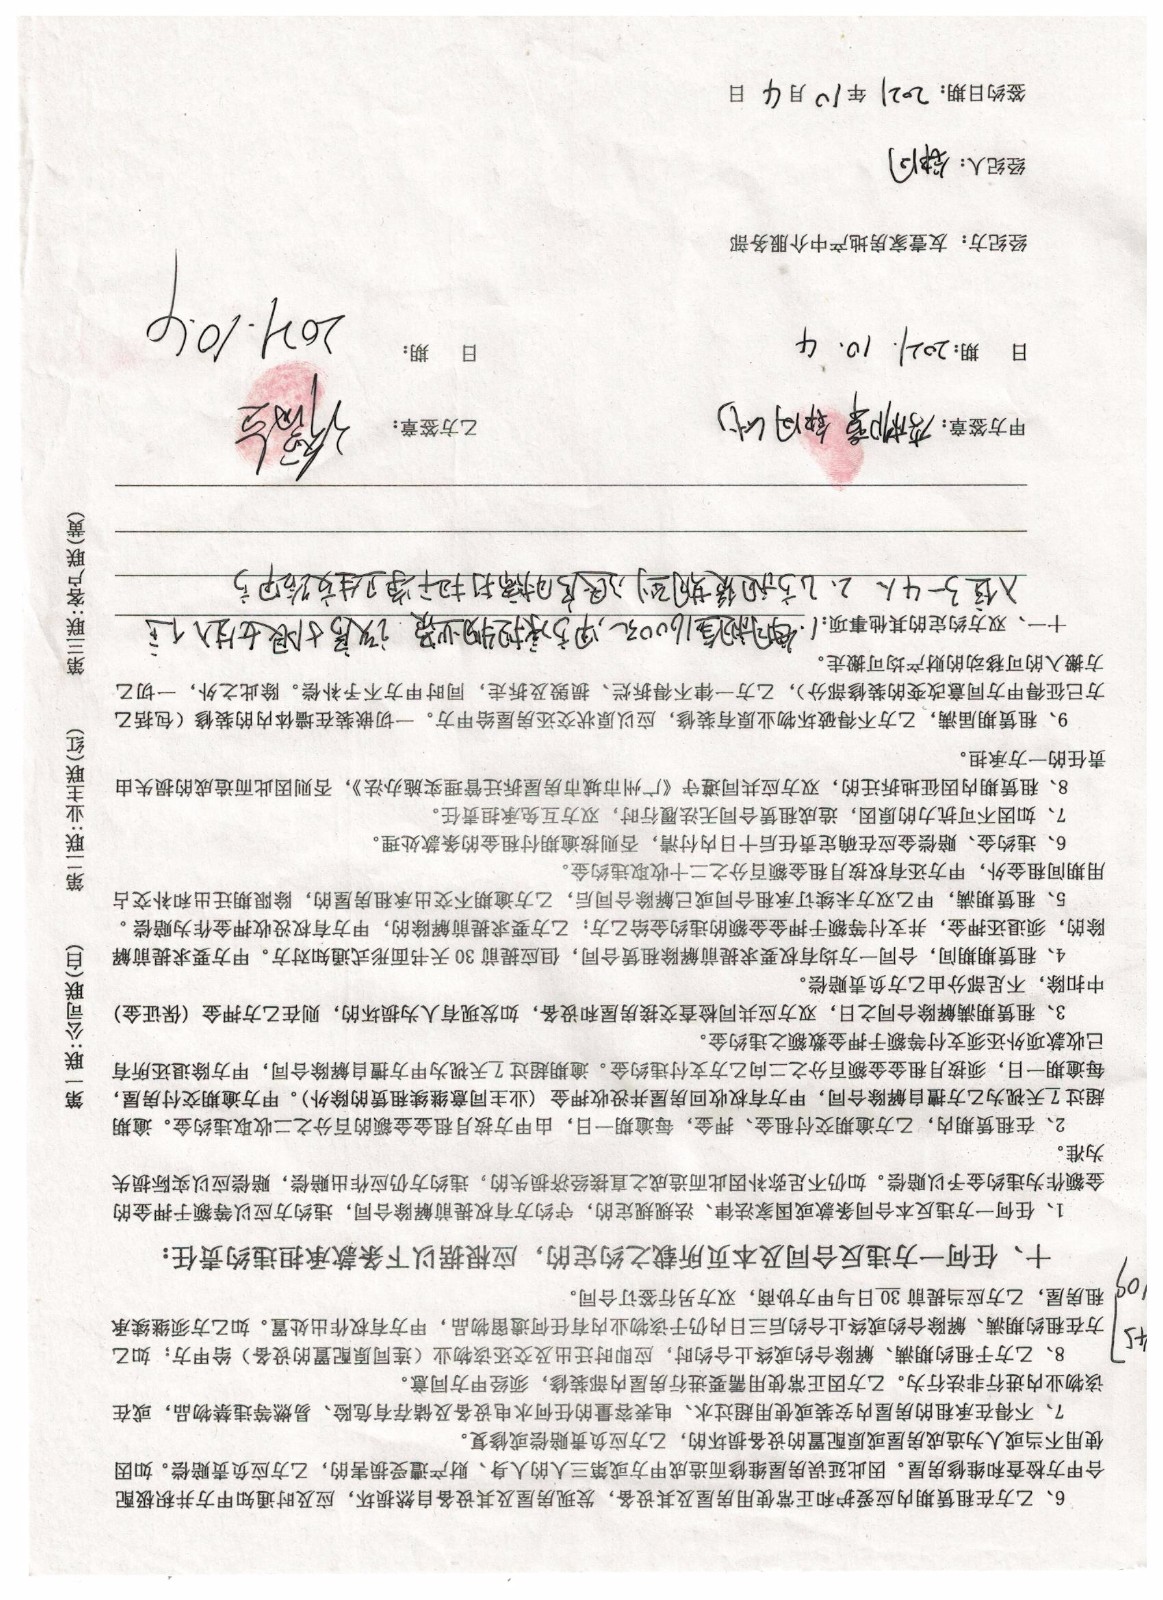 6、乙方在租赁期内应爱护和正常使用房屋及其设备，发现房屋及其设备自然损坏，应及时通知甲方并积极配
合甲方检查和维修房屋。因此延误房屋维修而造成甲方或第三人的人身、财产遭受损害的，乙方应负责赔偿。如因
使用不当或人为造成房屋或原配置的设备损坏的，乙方应负责赔偿或修复。
7、不得在承租的房屋内安装或使用超过水、电表容量的任何水电设备及储存有危险、易燃等违禁物品，或在
该物业内进行非法行为。乙方因正常使用需要进行房屋内部装修，须经甲方同意。
8、乙方于租约期满、解除合约或终止合约时，应即时迁出及交还该物业（连同原配置的设备）给甲方；如乙
方在租约期满、解除合约或终止合约后三日内仍于该物业内有任何遗留物品，甲方有权作出处置。如乙方须继续承
租房屋，乙方应当提前 30 日与甲方协商，双方另行签订合同。
十、任何一方违反合同及本页所载之约定的，应根据以下条款承担违约责任：
1、任何一方违反本合同条款或国家法律、法规规定的，守约方有权提前解除合同，违约方应以等额于押金的
金额作为违约金予以赔偿。如仍不足弥补因此而造成之直接经济损失的，违约方仍应作出赔偿，赔偿应以实际损失
为准。
2、在租赁期内，乙方逾期交付租金、押金，每逾期一日，由甲方按月租金金额的百分之二收取违约金。逾期
超过 7 天视为乙方擅自解除合同，甲方有权收回房屋并没收押金（业主同意继续租赁的除外）。甲方逾期交付房屋，
每逾期一日，须按月租金金额百分之二向乙方支付违约金。逾期超过 7 天视为甲方擅自解除合同，甲方除退还所有
已收款项外还须支付等额于押金数额之违约金。
3、租赁期满解除合同之日，双方应共同检查交接房屋和设备，如发现有人为损坏的，则在乙方押金（保证金）
中扣除，不足部分由乙方负责赔偿。
4、租赁期间，合同一方均有权要求提前解除租赁合同，但应提前 30 天书面形式通知对方。甲方要求提前解
除的，须退还押金，并支付等额于押金金额的违约金给乙方；乙方要求提前解除的，甲方有权没收押金作为赔偿。
5、租赁期满，甲乙双方未续订承租合同或已解除合同后，乙方逾期不交出承租房屋的，除限期迁出和补交占
用期间租金外，甲方还有权按月租金额百分之二十收取违约金。
6、违约金、赔偿金应在确定责任后十日内付清，否则按逾期付租金的条款处理。
7、如因不可抗力的原因，造成租赁合同无法履行时，双方互免承担责任。
8、租赁期内因征地拆迁的，双方应共同遵守《广州市城市房屋拆迁管理实施办法》，否则因此而造成的损失由
责任的一方承担。
9、租赁期届满，乙方不得破坏物业原有装修，应以原状交还房屋给甲方。一切嵌装在墙体内的装修（包括乙
方已征得甲方同意改变的装修部分），乙方一律不得拆烂、损毁及拆走，同时甲方不予补偿。除此之外，一切乙
方搬入的可移动的财产均可搬走。
十一、双方约定的其他事项：1. 每月租金1600元，甲方承担物业费. 该房只限女性入住
入住3-4人 2. 乙方租赁期到
甲方签章：
乙方签章：
日 期：2021. 10. 4
日 期：2021. 10. 4
经纪方：友壹家房地产中介服务部
经纪人：
签约日期：2021 年 10 月 4 日
第一联：公司联(白) 第二联：业主联(红) 第三联：客户联(黄)